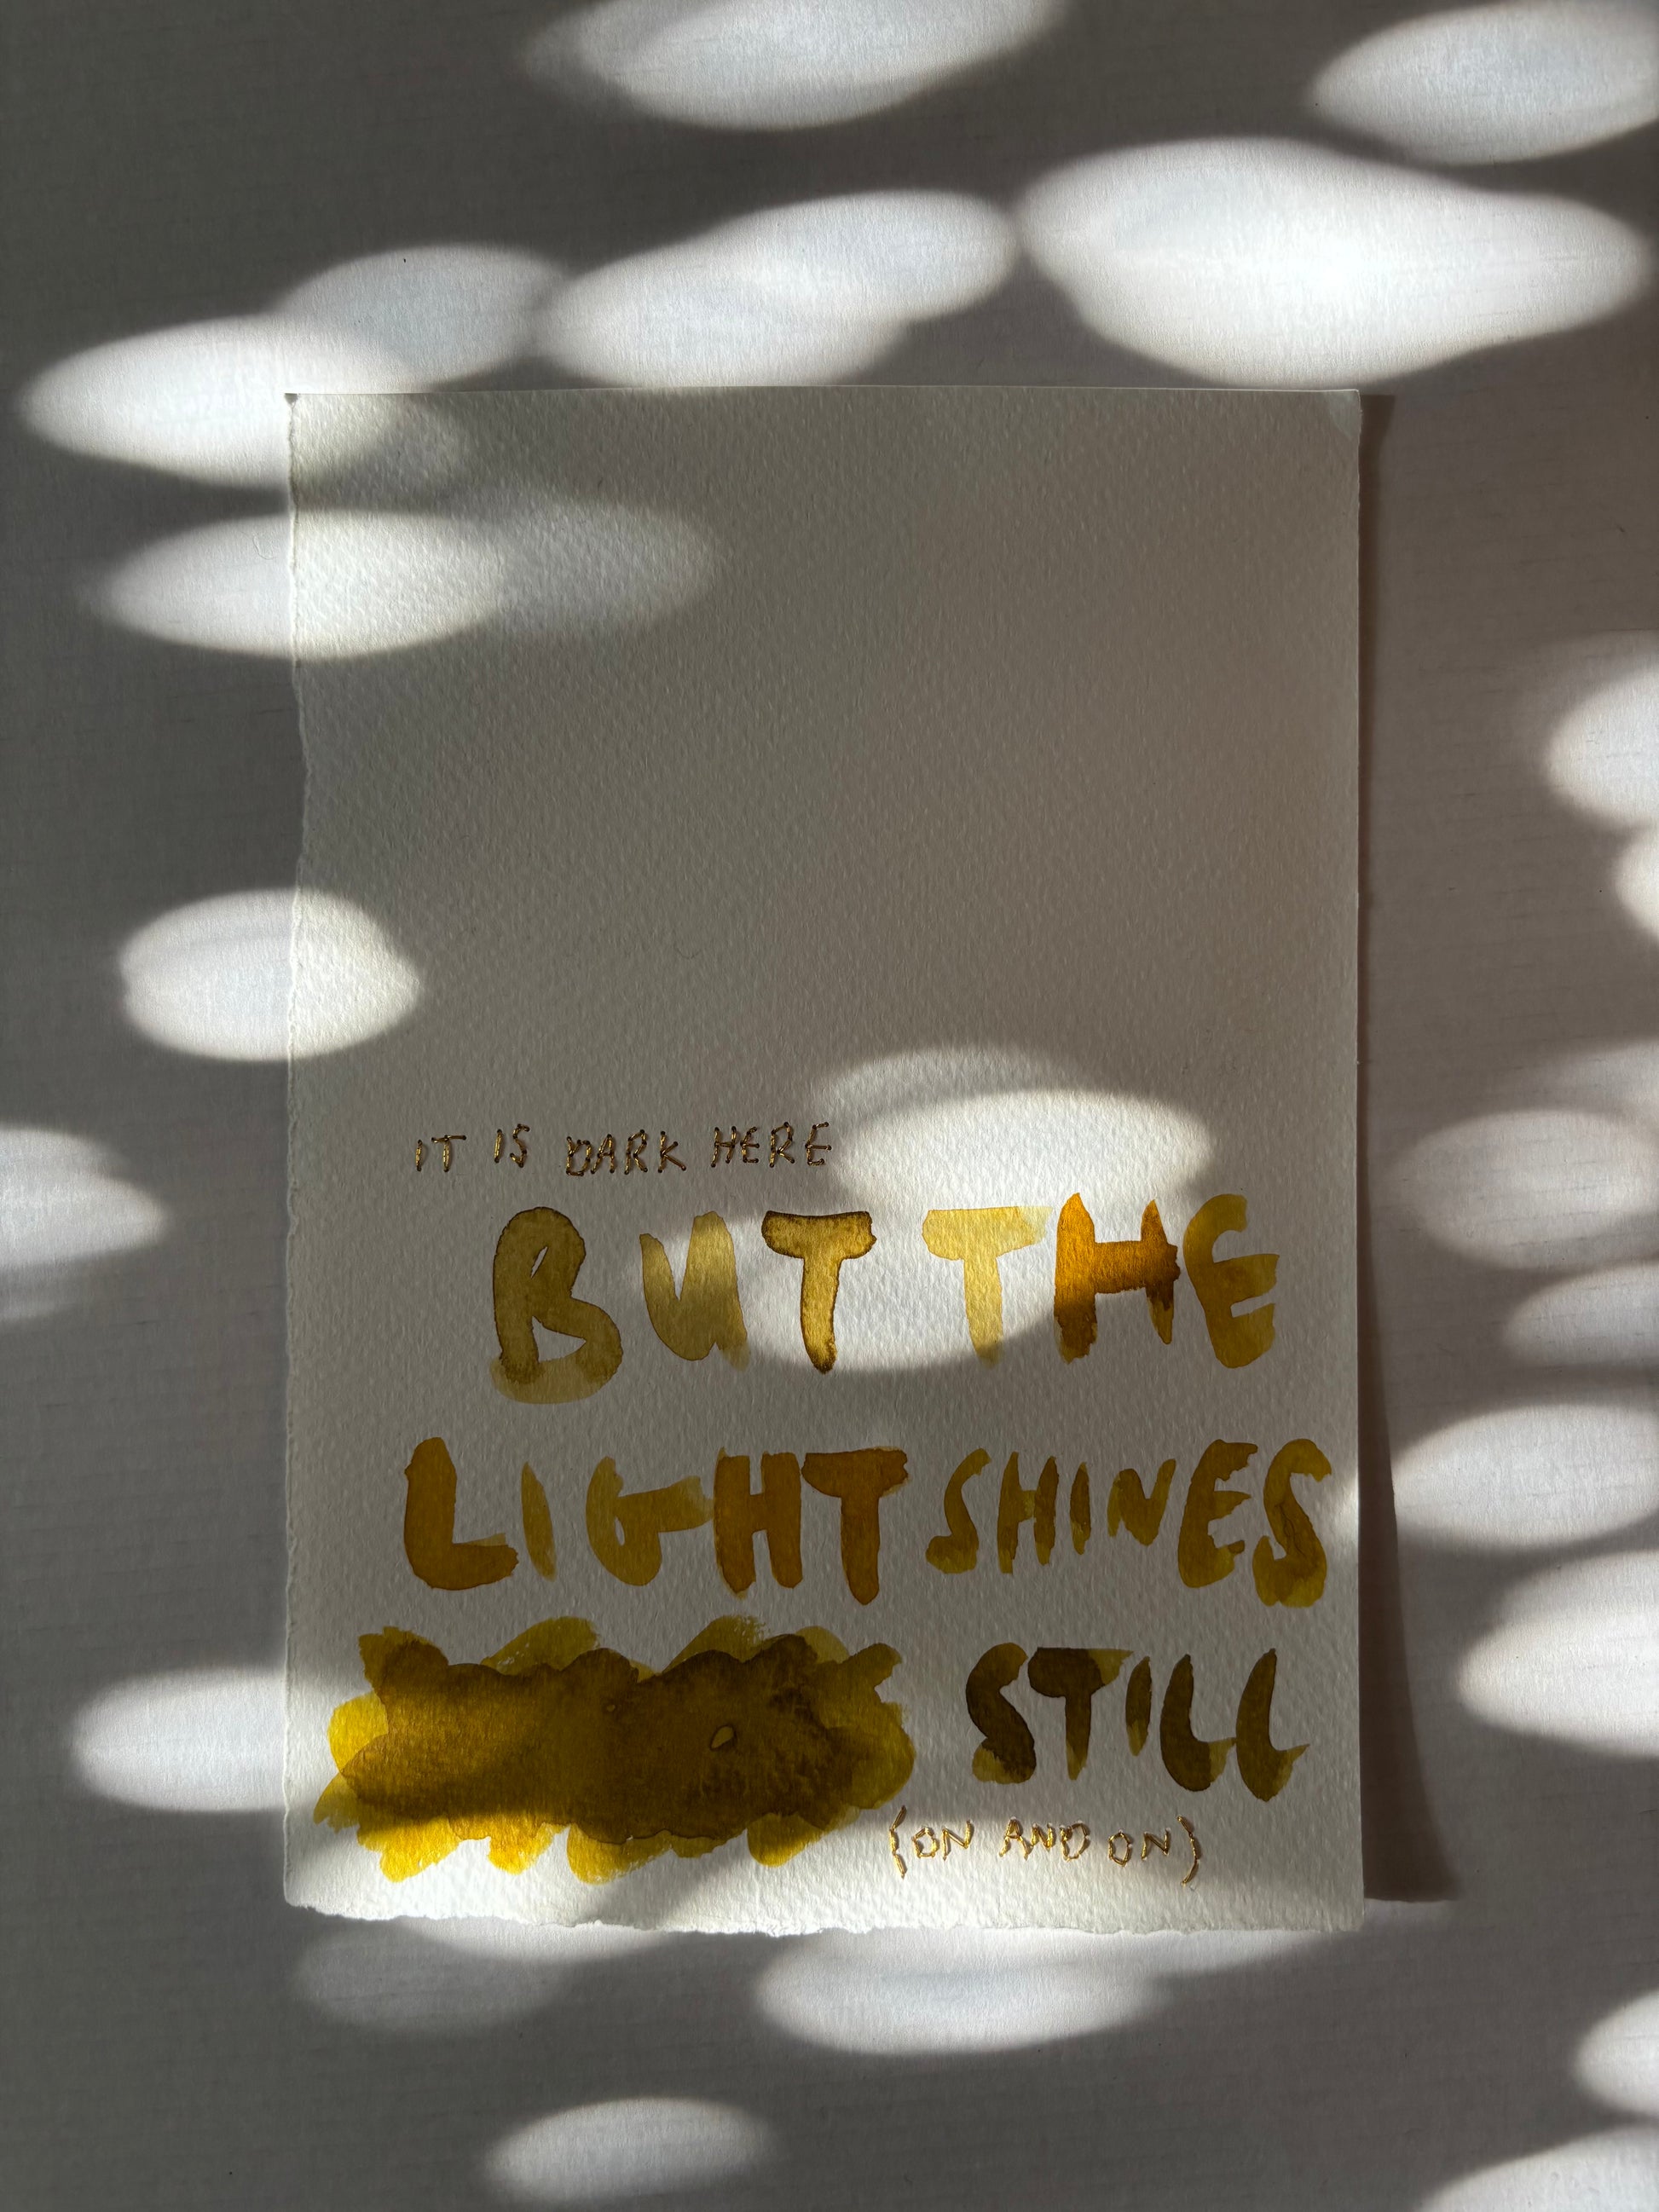 IT IS DARK HERE
BUT THE
LIGHT SHINES
STILL
(ON AND ON)